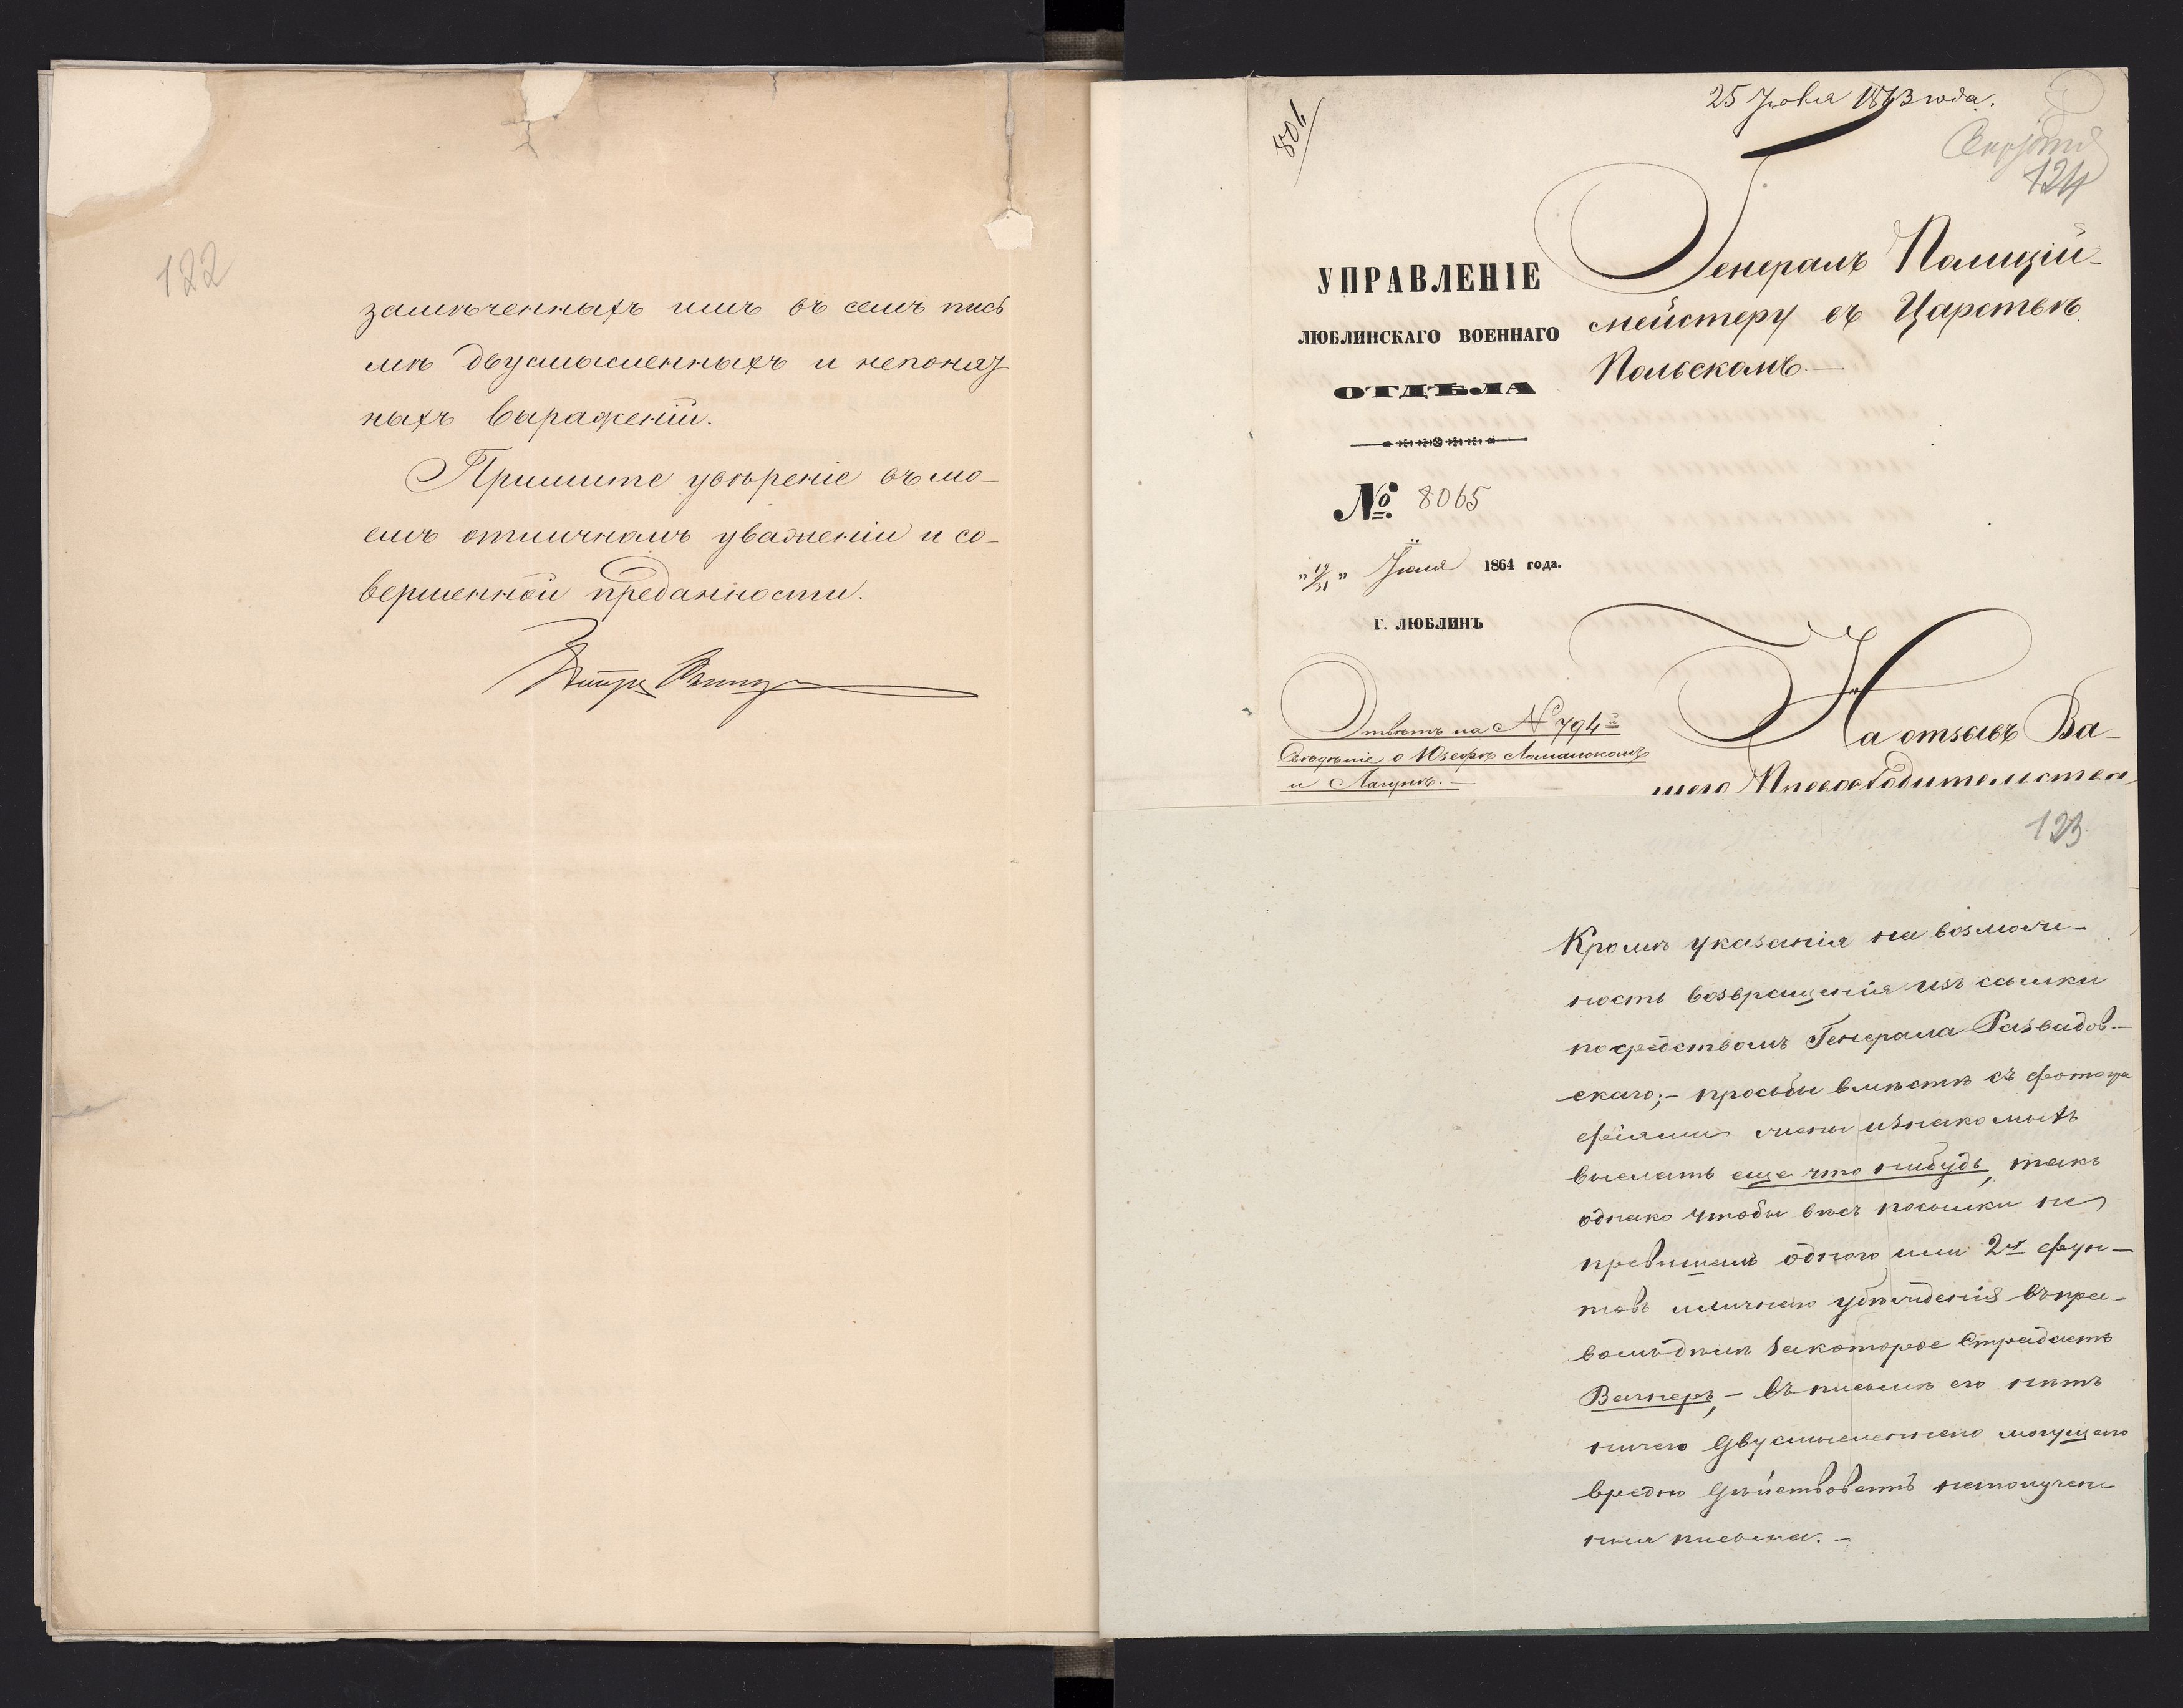 122
замѣченныхъ имъ въ семъ пись
мѣ двусмысленныхъ и непонят
ныхъ выраженій.
Примите увѣреніе въ мо-
емъ отличномъ уваженіи и со-
вершенной преданности.
801
25 1863 года.
124
УПРАВЛЕНІЕ
ЛЮБЛИНСКАГО ВОЕННАГО
ОТДѢЛА
№ 8065
"19/31" Іюля 1864 года.
Г. ЛЮБЛИНЪ
Генералъ Полицій-
мейстеру въ Царствѣ
Польскомъ.—
Отвѣтъ на № 794
Свѣдѣніе о Юзефѣ
и
На отзывъ Ва-
шего Превосходительства
123
Кромѣ указанія на возмож-
ность возвращенія изъ ссылки
посредствомъ Генерала Развадов-
скаго;- просьбы вмѣстѣ съ фотогра
фіями жены и знакомыхъ
выслать еще что нибудь, такъ
однако чтобы вѣсъ посылки не
превышалъ одного или 2х фун-
товъ и личнаго убѣжденія въ пра-
вомъ дѣлѣ за которое страдаетъ
Вагнеръ,- въ письмѣ его нѣтъ
ничего двусмысленнаго могущаго
вредно дѣйствовать на получен-
ныя письма.-